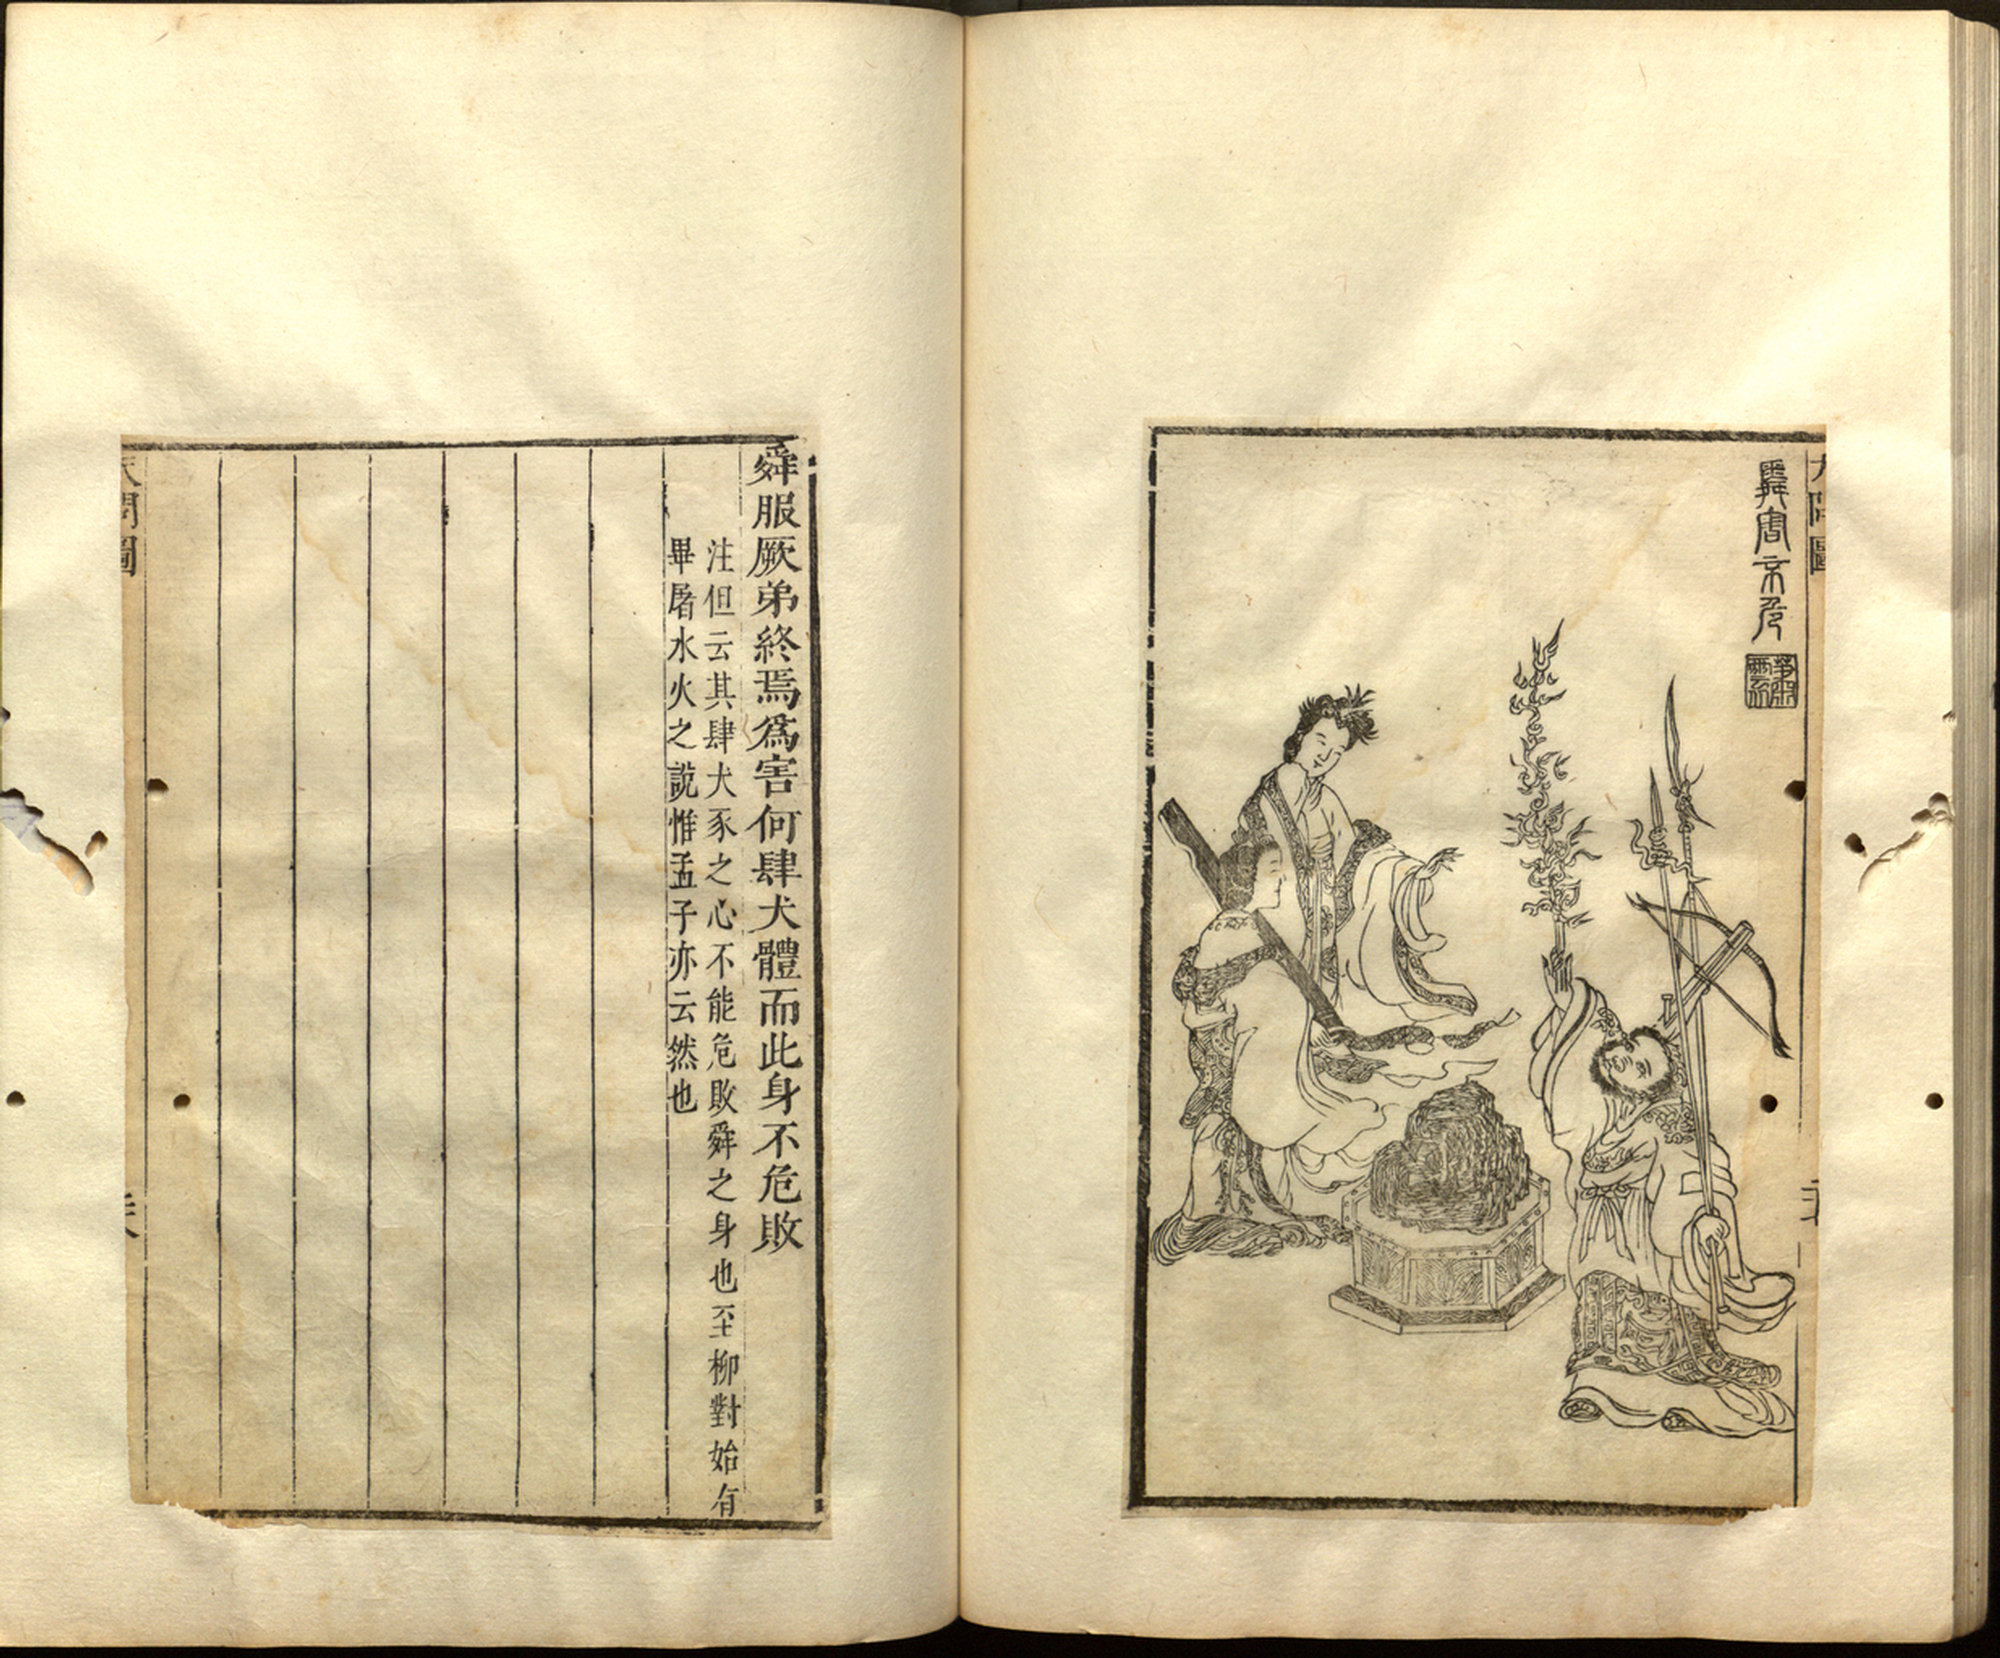 天問圖
舜害不危
舜服厥弟終焉爲害何肆犬體而此身不危敗
注但云其肆犬豕之心不能危敗舜之身也至柳對始有
畢屠水火之說惟孟子亦云然也
天問圖